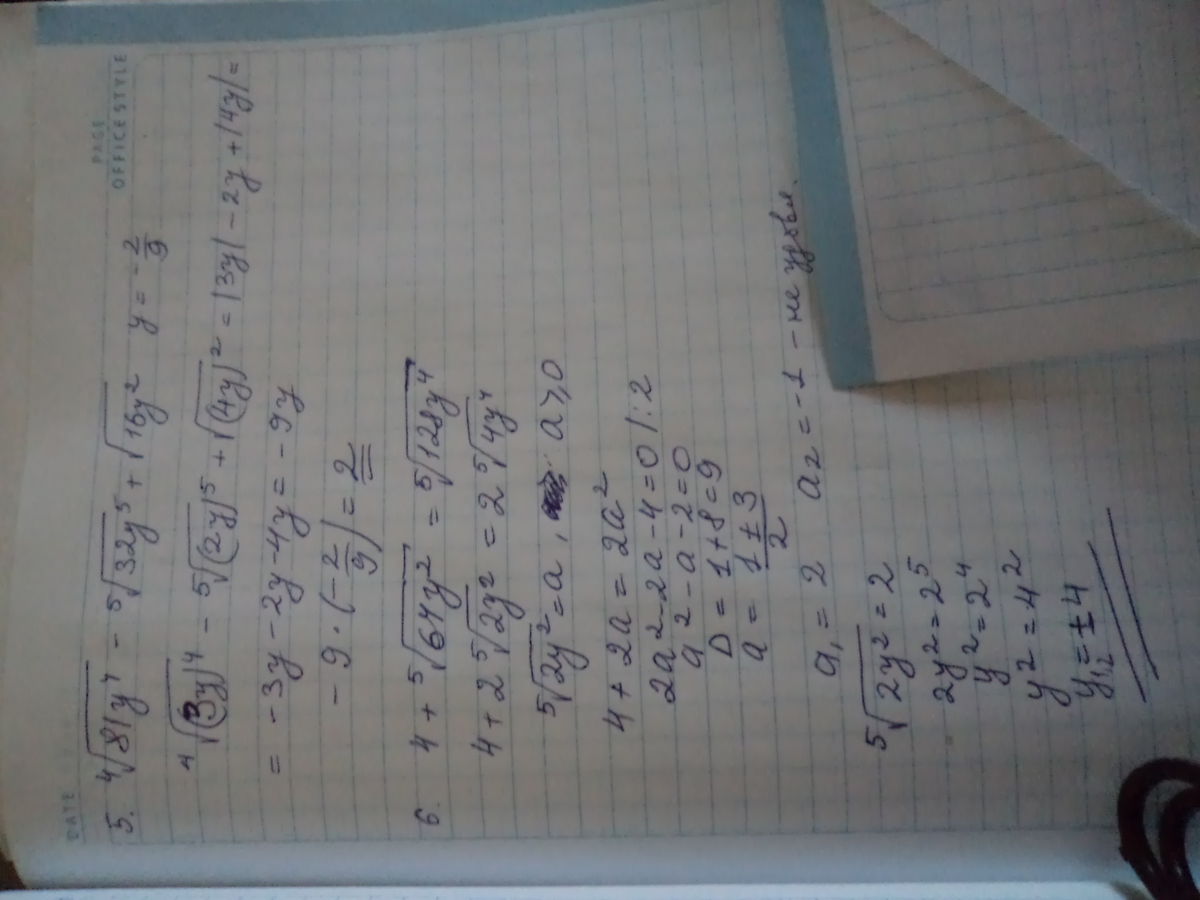 DATE
PAGE
OFFICE STYLE
5. ⁴√81y⁴ - ⁵√32y⁵ + √16y² y = -2/9
⁴√(3y)⁴ - ⁵√(2y)⁵ + √(4y)² = |3y| - 2y + |4y| =
= -3y - 2y - 4y = -9y
-9·(-2/9) = 2
6. 4 + ⁵√64y² = ⁵√128y⁴
4 + 2⁵√2y² = 2⁵√4y⁴
⁵√2y² = a, a ⩾ 0
4 + 2a = 2a²
2a² - 2a - 4 = 0 /:2
a² - a - 2 = 0
D = 1 + 8 = 9
a = (1 ± 3)/2
a₁ = 2 a₂ = -1 - не удовл.
⁵√2y² = 2
2y² = 2⁵
y² = 2⁴
y² = 4²
y₁,₂ = ±4